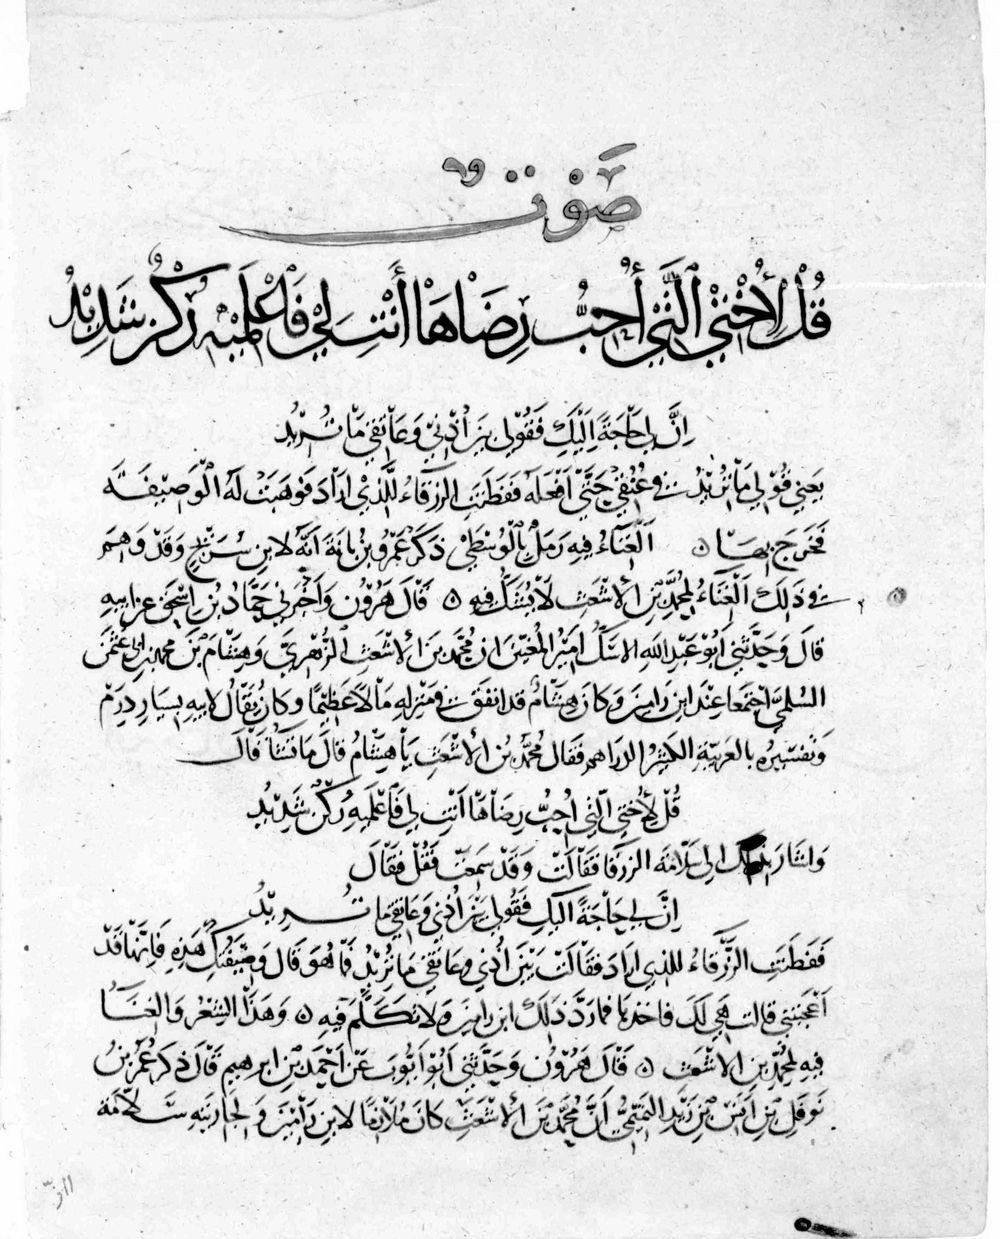 صَوْت
قُلْ لِأُخْتِي الَّتِي أُحِبُّ رِضَاهَا أَنْتِ لِي فَاعْلَمِيهِ رُكْنٌ شَدِيدُ
اِنَّ لِي حَاجَةً اِلَيْكِ فَقُولِي بَيْنَ أُذْنِي وَعَاتِقِي مَا تُرِيْدُ
يعني قُوْلِي مَا تُرِيْدُ في عُنُقِي حَتَّى اَفْعَلَهُ فَفَطَنَتِ الزَّرْقَاءُ لِلَّذِي اَرَادَ فَوَهَبَتْ لَهُ الْوَصِيْفَةَ
فَخَرَجَ بِهَا ٥ الْغِنَاءُ فِيهِ رَمَلٌ بِالْوُسْطَى ذَكَرَ عَمْرُو بْنُ بَانَةَ اَنَّهُ لابن سُرَيْجٍ وَقَدْ وَهِمَ
في ذَلِكَ الْغِنَاءُ لِمُحَمَّدِ بْنِ الْأَشْعَثِ لَا يُشَكُّ فِيهِ ٥ قَالَ هَرُوْن وَاَخْبَرَنِي حَمَّادُ بْنُ اِسْحَقَ عَنْ اَبِيهِ
قَالَ وَحَدَّثَنِي اَبُوْ عَبْدِ اللهِ امِيْرُ الْمُغَنِّيْنَ ان مُحَمَّدَ بْنَ الْأَشْعَثِ الزُّهْرِيَّ وَهِشَامَ بْنَ محمد بن ابي عُثْمَنَ
السُّلَمِيَّ اجْتَمَعَا عِنْدَ ابنِ رَامِيْنَ وَكَانَ هِشَامٌ قَدْ انفَقَ في مَنْزِلِهِ مَالًا عَظِيْمًا وكَانَ يُقَالُ لِابِيهِ بسيار دِرَمْ
وَتَفْسِيْرُهُ بالعَرَبِيَّةِ الكَثِيْرُ الدراهم فَقَال مُحَمَّدُ بْنُ الْأَشْعَثِ يَا هِشَامُ قَالَ مَا تَشَاءُ قَالَ
قُلْ لِأُخْتِي الَّتِي اُحِبُّ رِضَاهَا اَنْتِ لِي فَاعْلَمِيهِ رُكْنٌ شَدِيْدُ
وَاشَارَ بِذَلِكَ الى سَلَّامَةَ الزرقا فَقَالَتْ وَقَدْ سَمِعَتْ فَقُلْ فَقَالَ
اِنَّ لِي حَاجَةً اليكِ فَقُولِي بَيْنَ أُذْنِي وَعَاتِقِي مَا تُرِيدُ
فَفَطَنَتِ الزَّرْقَاءُ لِلَّذِي اراد فقَالَتْ بَيْنَ أُذْنِي وعَاتِقِي مَا تُرِيْدُ فَمَا هُوَ قَال وَصِيْفَتُكِ هَذِهِ فَاِنَّهَا قَدْ
اَعْجَبَتْنِي قالت هِيَ لَكَ فَاخَذَهَا فَمَا رَدَّ ذَلِكَ ابن رامِيْنَ وَلَا تَكَلَّمَ فِيهِ ٥ وَهَذَا الشِّعْرُ وَالْغِنَاءُ
فِيهِ لِمُحَمَّدِ بْنِ الْاشْعَثِ ٥ قَالَ هَرُوْنُ وَحَدَّثَنِي اَبُوْ اَيُّوْبَ عَنْ اَحْمَدَ بْنِ ابرهيم قَالَ ذكَرَ عُمَرُ بْنُ
نَوْفَلِ بْنِ اَنَسِ بْنِ زَيْدِ التَّمِيمِيُّ اَنَّ مُحَمَّدَ بْنَ الْأَشْعَثِ كَانَ مُلَازِمًا لابنِ رَامِيْنَ وَلِجَارِيَتِهِ سَلَّامَةَ